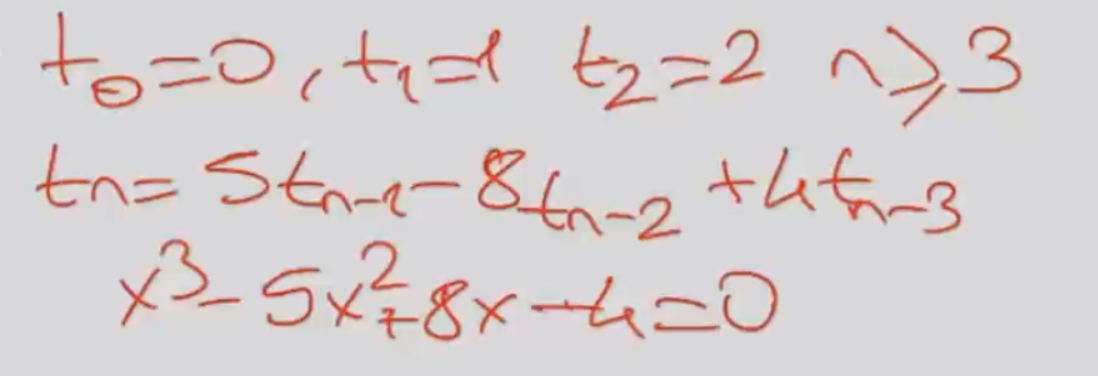 t₀=0, t₁=1 t₂=2 n⩾3
tn= 5tn-1-8tn-2+4tn-3
x³-5x²+8x-4=0